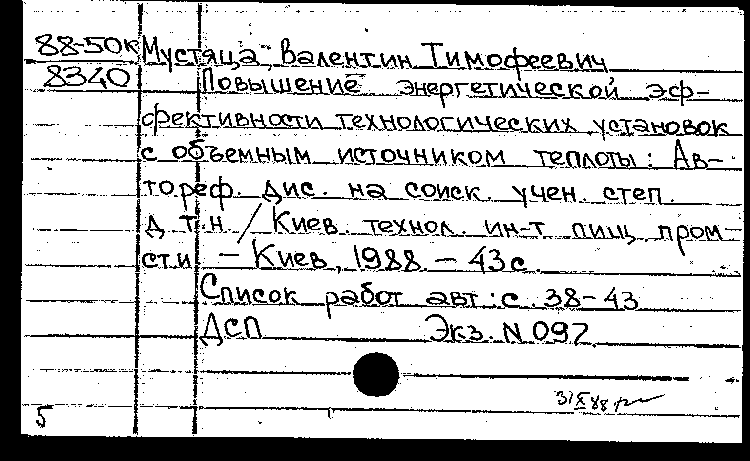 88-50к Мустяца, Валентин Тимофеевич
8340 Повышение энергетической эф-
фективности технологических установок
с объемным источником теплоты: Ав-
тореф. дис. на соиск. учен. степ.
д.т.н. / Киев. технол. ин-т пищ. пром-
сти. – Киев, 1988. – 43 с.
Список работ авт.: с. 38-43
ДСП Экз. N 097
31 X 88
5